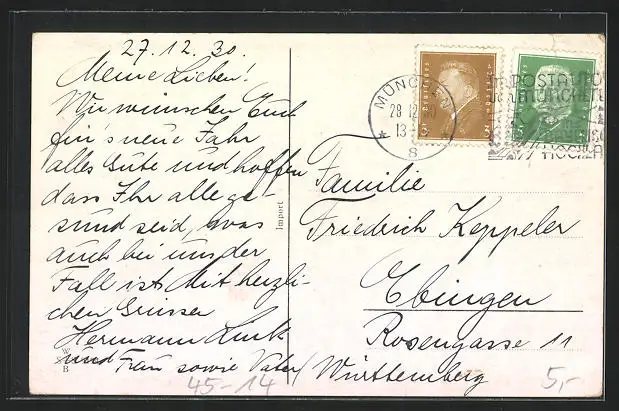 27.12.30.
Meine Lieben!
Wir wünschen Euch
für's neue Jahr
alles Gute und hoffen
dass Ihr alle ge-
sund seid, was
auch bei uns der
Fall ist. Mit herzli-
chen Grüssen
Hermann
und Frau sowie Vater
W
B
45-14
Import
MÜNCHEN
28 12 30
13-
8
Deutsches
Reich
3
POSTAUTO
HOCHLA
Familie
Friedrich Keppeler
Ebingen
Rosengasse 11
Württemberg
5,-